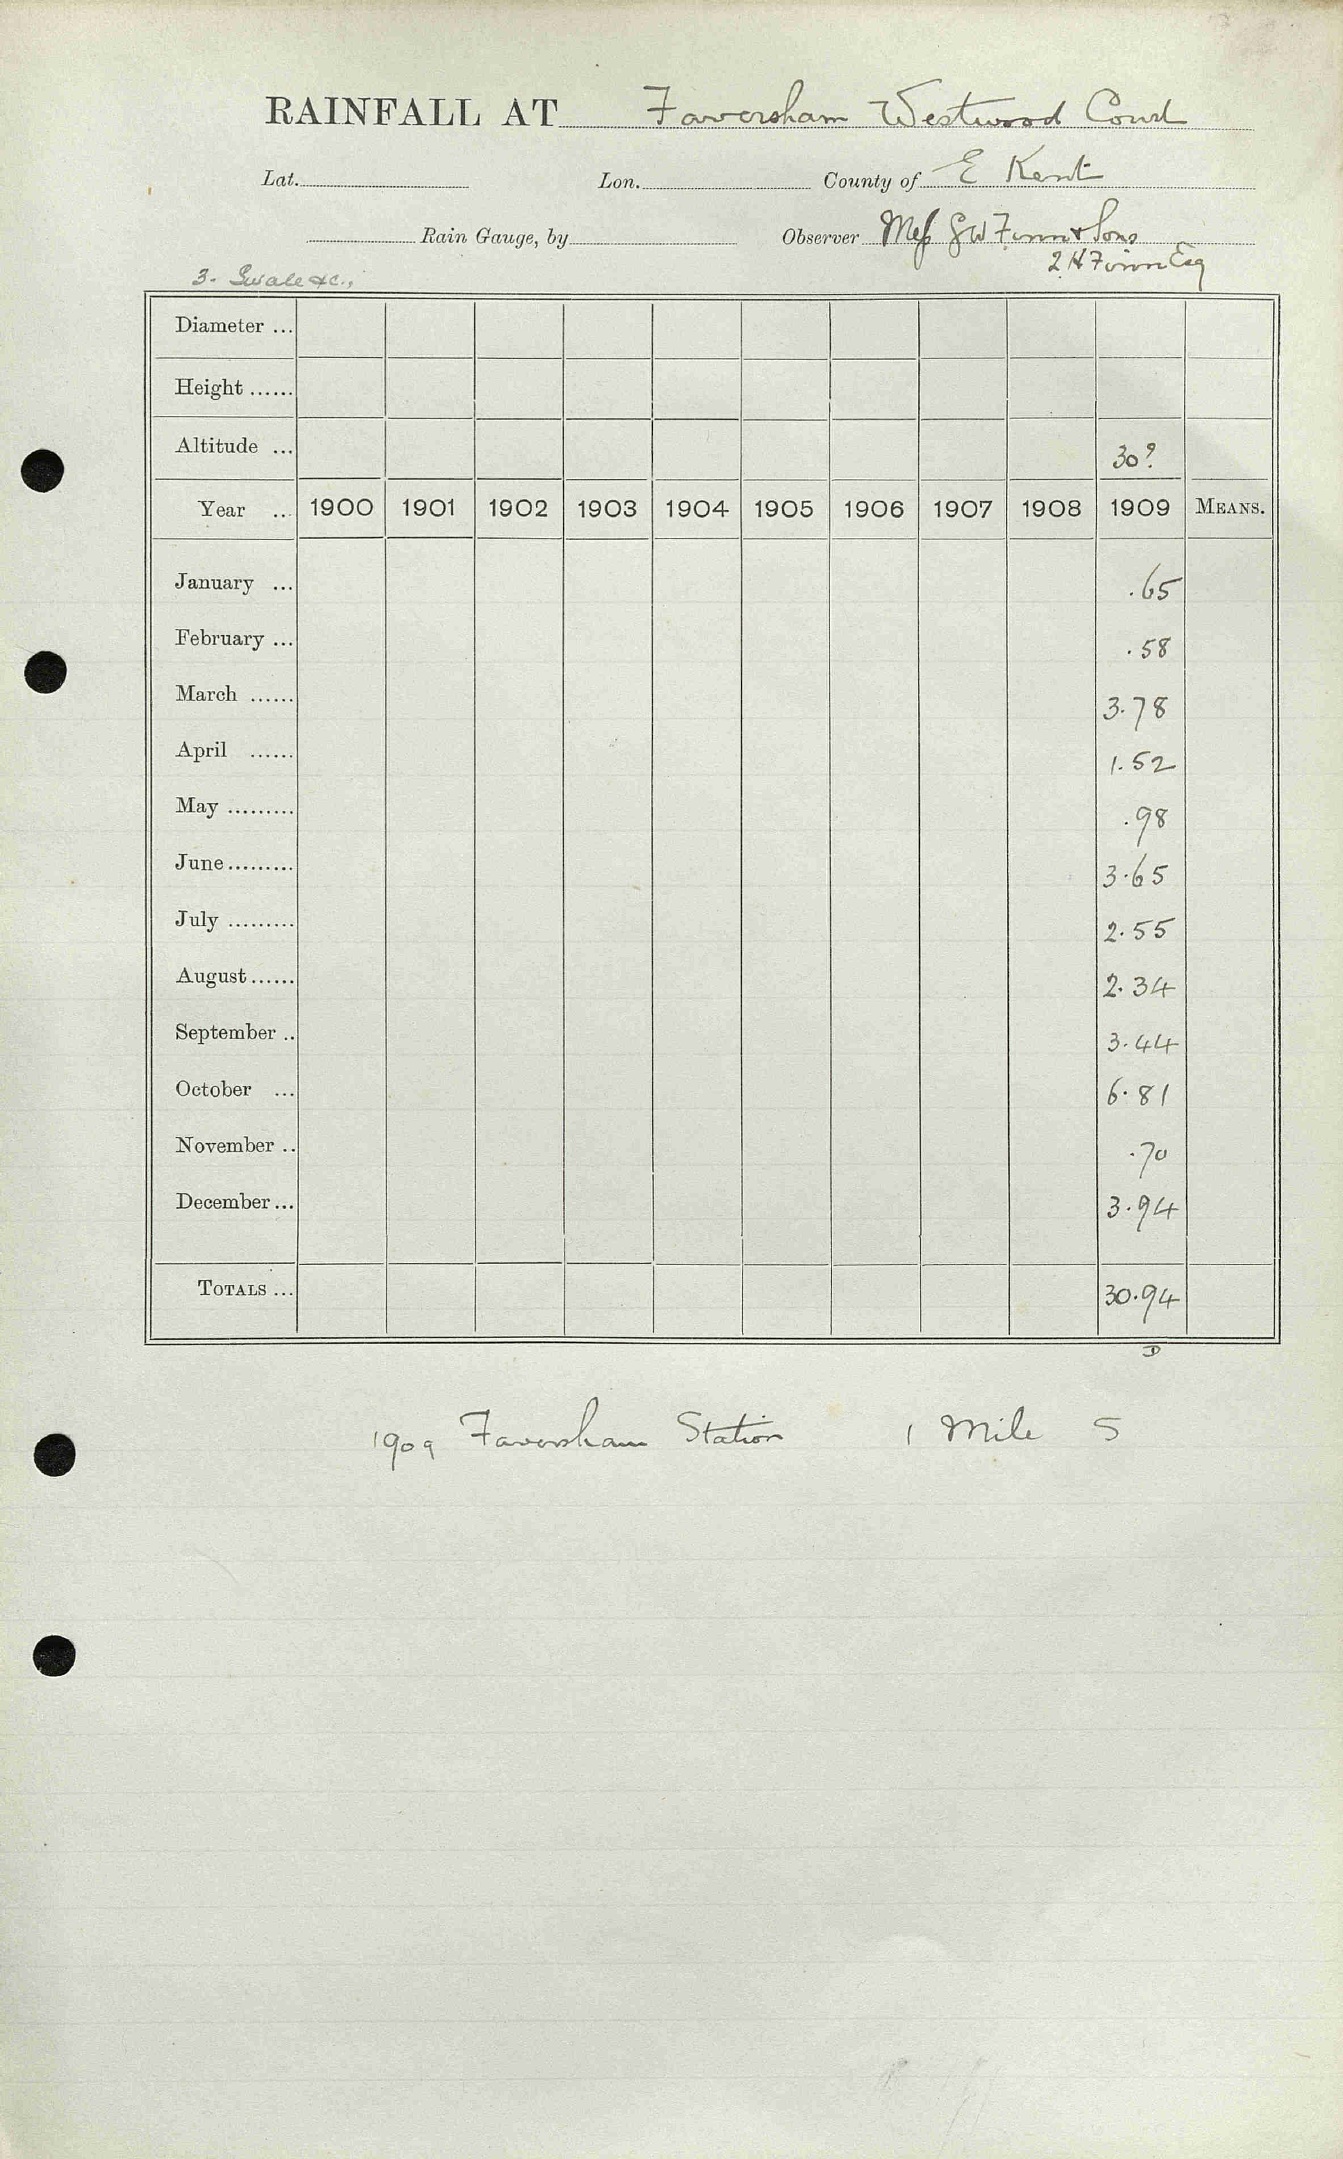 RAINFALL AT Faversham Westwood Court
Lat. Lon. County of E Kent
Rain Gauge, by Observer Mess GW Finn & Sons
2 H Finn Esq
3. Swale &c.,
Diameter ...
Height ......
Altitude ... 30?
Year ... 1900 1901 1902 1903 1904 1905 1906 1907 1908 1909 MEANS.
January ... .65
February ... .58
March ...... 3.78
April ...... 1.52
May ......... .98
June ......... 3.65
July ......... 2.55
August ...... 2.34
September .. 3.44
October ... 6.81
November .. .70
December ... 3.94
TOTALS ... 30.94
D
1909 Faversham Station 1 Mile S